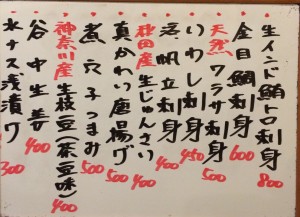 生インド鮪トロ刺身 800
金目鯛刺身 600
天然ワラサ刺身 500
いわし刺身 450
活帆立刺身 400
秋田産生じゅんさい 400
真かわい唐揚げ 500
煮穴子つまみ 500
神奈川産生枝豆(茶豆味) 400
谷中生姜 400
水ナス浅漬ケ 300